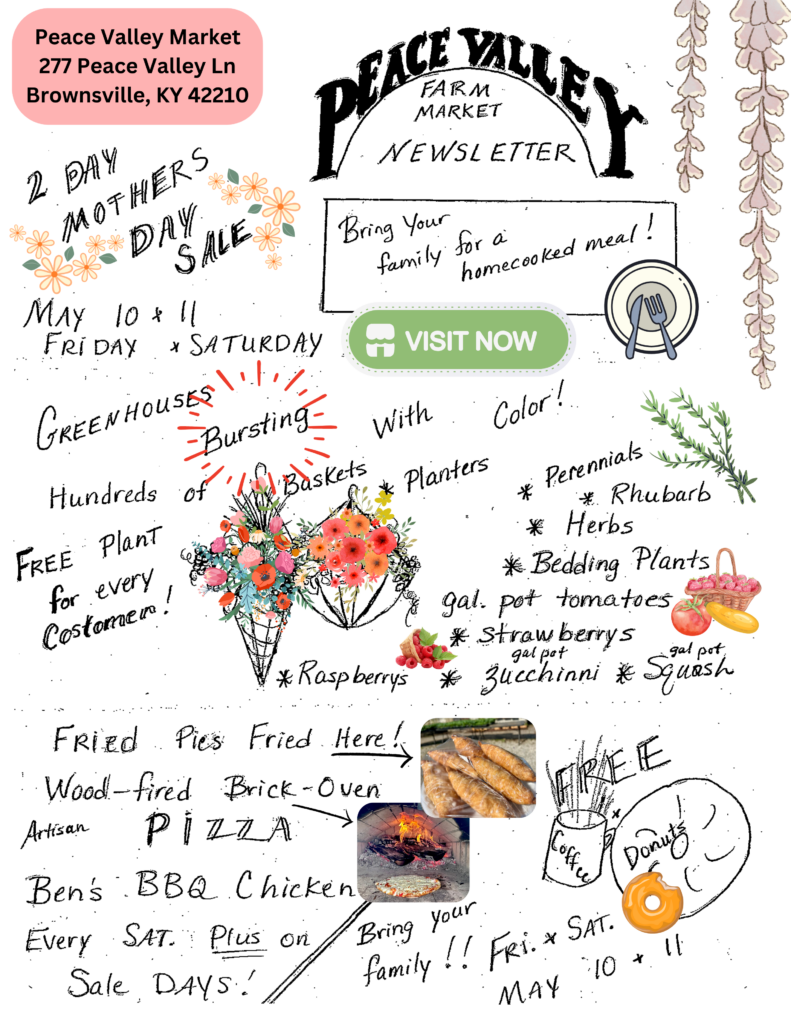 Peace Valley Market
277 Peace Valley Ln
Brownsville, KY 42210
PEACE VALLEY
FARM
MARKET
NEWSLETTER
2 DAY
MOTHERS
DAY
SALE
MAY 10 & 11
FRIDAY & SATURDAY
Bring Your
family for a
homecooked meal!
VISIT NOW
GREENHOUSES Bursting With Color!
Hundreds of Baskets * Planters
* Perennials
* Rhubarb
* Herbs
* Bedding Plants
gal. pot tomatoes
* strawberrys
FREE Plant
for every
Costomer!
* Raspberrys
* gal pot zucchinni
* gal pot Squash
Fried Pies Fried Here!
Wood-fired Brick-Oven
Artisan PIZZA
Ben's BBQ Chicken
Every SAT. Plus on
Sale DAYS!
Bring your
family!!
FREE
Coffee
&
Donuts
FRI. & SAT.
MAY 10 & 11